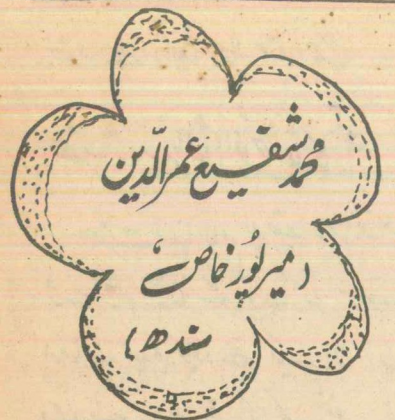 محمد شفیع عمر الدین
(میرپور خاص،
سندھ)